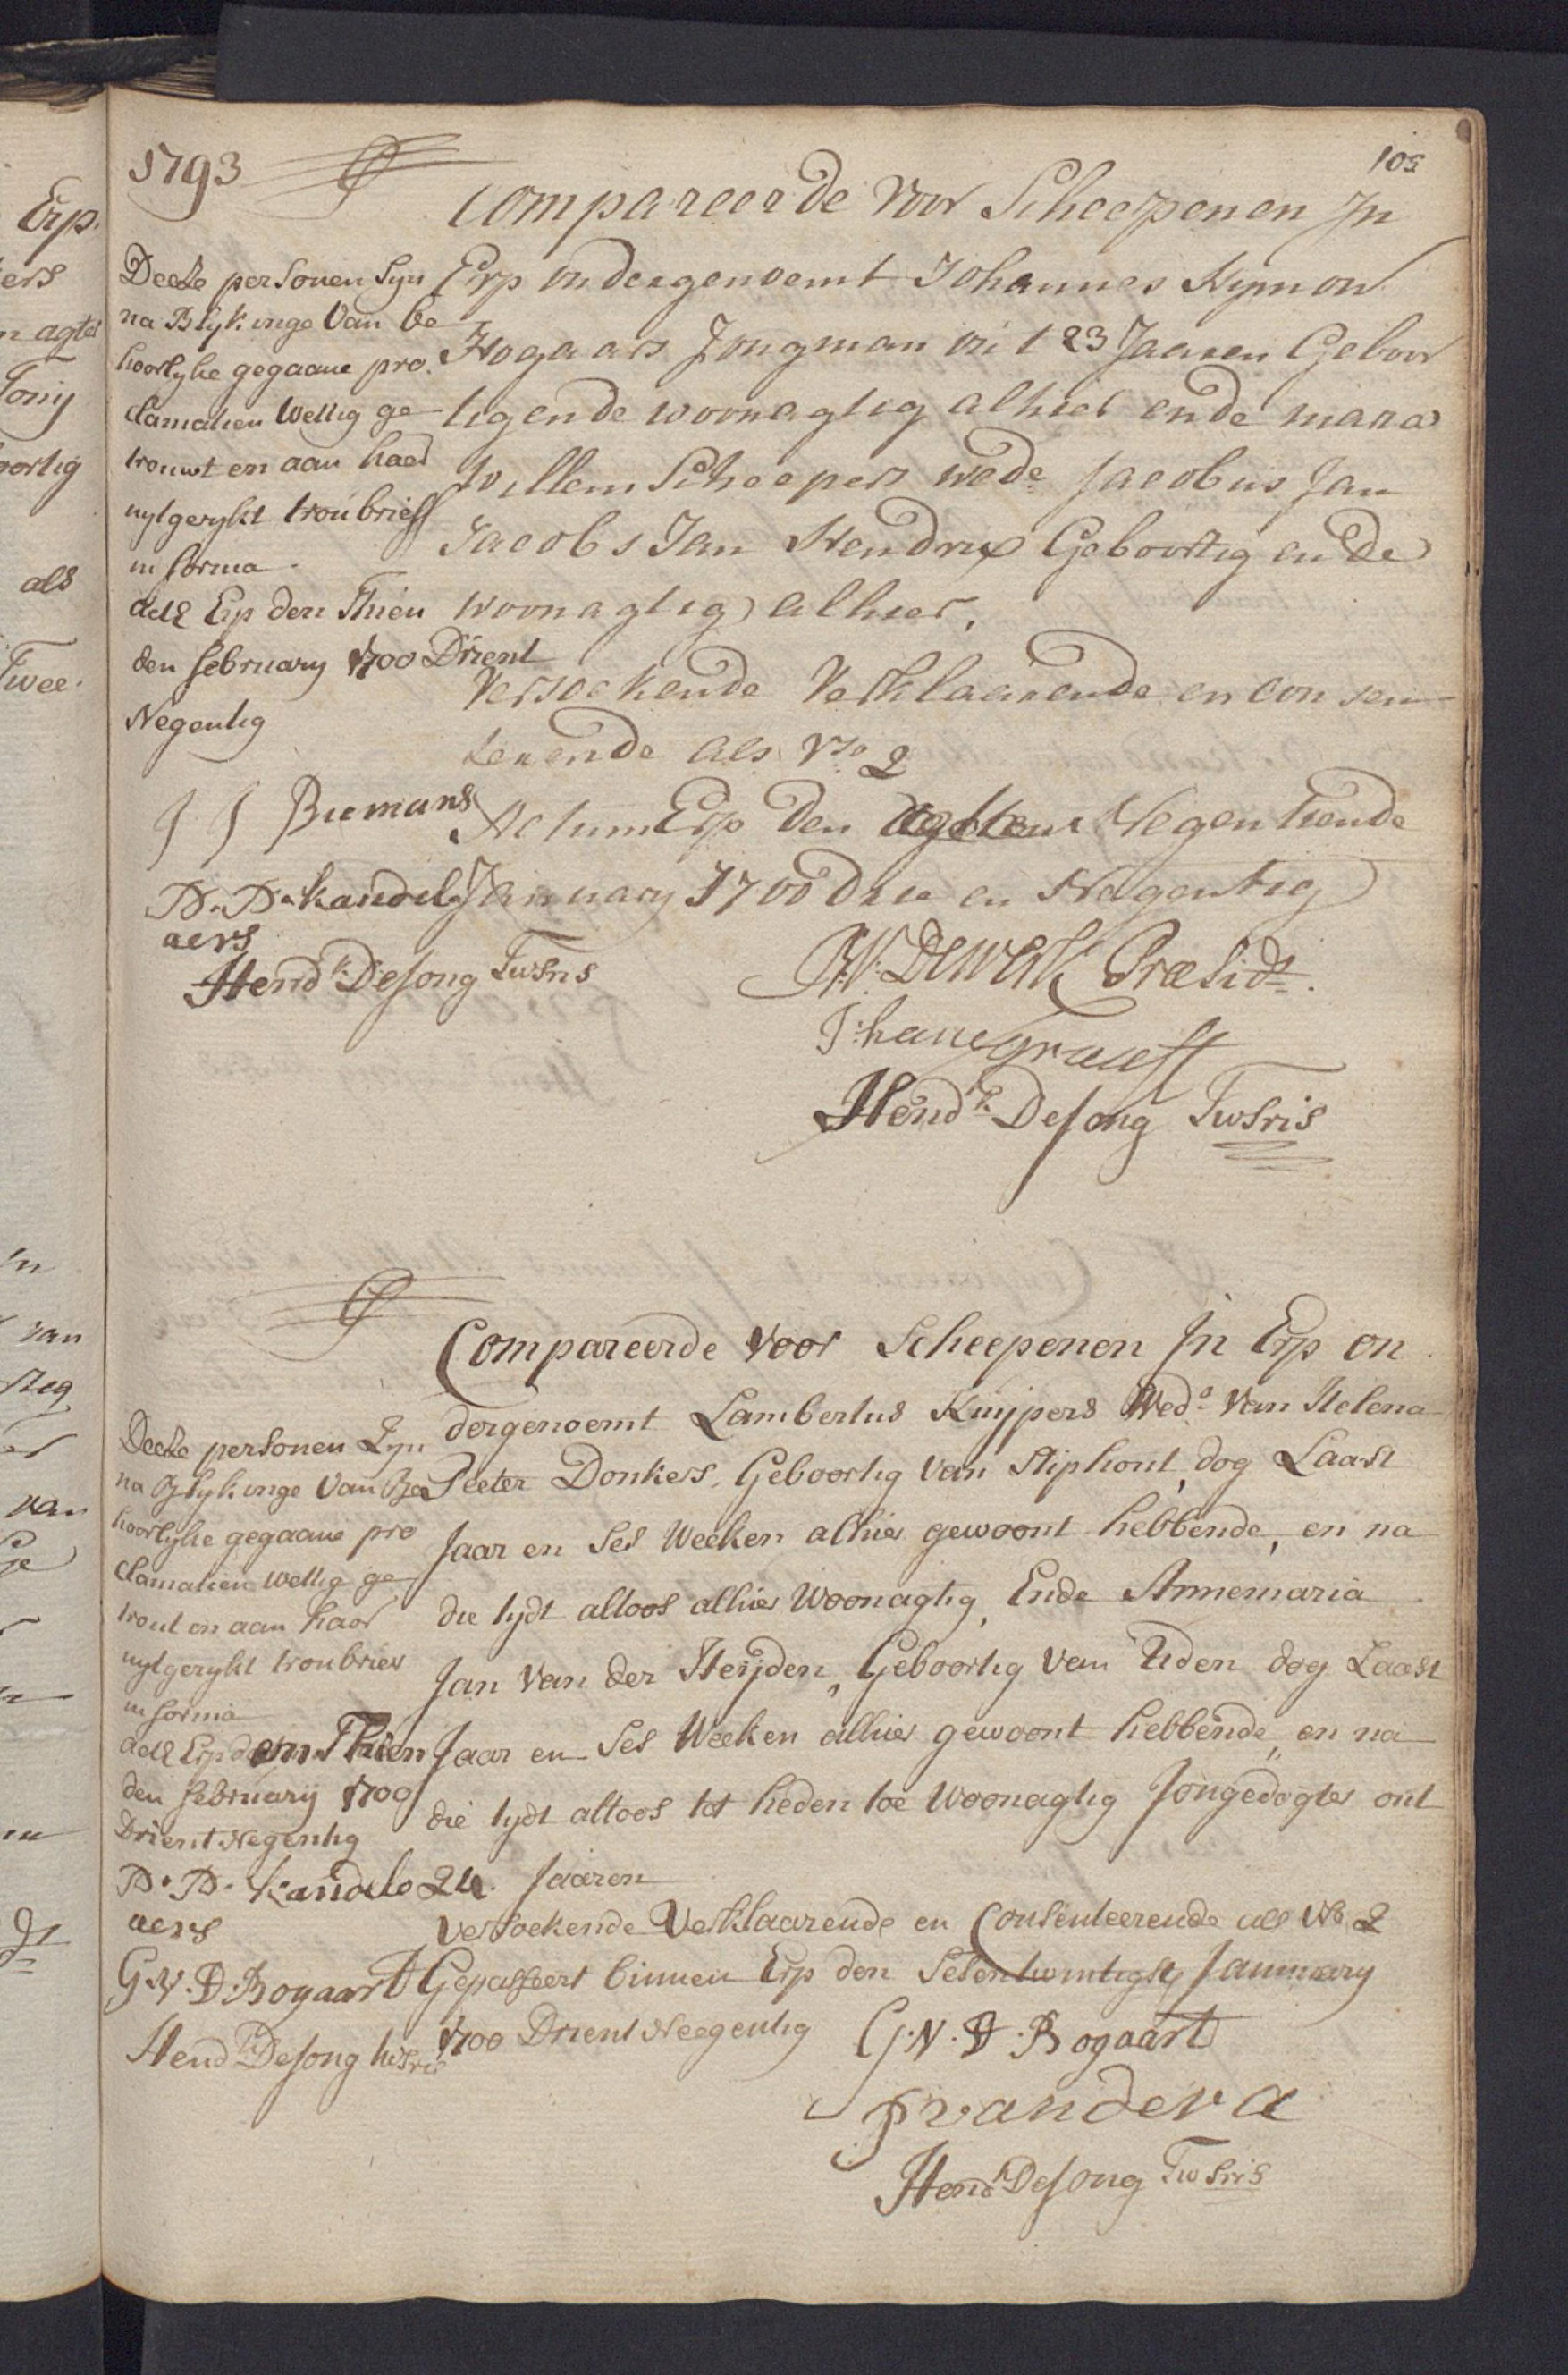 1793
105
Compareerde voor Scheepenen Jn
Erp ondergenoemt Johannes Symon
Hogaars Jongman out 23 Jaaren Geboor
tig ende woonagtig alhier ende maria
Willem Scheepers wede Jacobus Jan
Jacobs Jan Hendrix Geboortig ende
woonagtig alhier,
Versoekende Verklaarende en consen-
terende als No 2
Actum Erp den Negentiende
January 1700 Drie en Negentig
Præsidt.
Hendk DeJong Twsris
Deeze persouen Syn
na Blykinge Van be
hoorlyke gegaane pro
clamatien Wettig ge
trouwt en aan haer
uytgerykt troubrieff
in forma
acte Erp den Thien
den february 1700 Drient
Negentig
J J Biemans
D. D. kandel
aers
Hendk DeJong Twsris
Compareerde voor Scheepenen Jn Erp on
dergenoemt Lambertus Kuijpers Wedr Van Helena
Peeter Donkers, Geboortig Van Stiphout, dog Laast
Jaar en Ses Weeken alhier gewoont hebbende, en na
die tydt altoos alhier Woonagtig, Ende Annemaria
Jan Van der Heijden, Geboortig Van Uden dog Laast
Jaar en Ses Weeken alhier gewoont hebbende, en na
die tydt altoos tot heden toe Woonagtig Jongedogter out
24. Jaaren
Versoekende Verklaarende en Consenteerende als No 2
Gepasseert binnen Erp den Sesentwintigste January
1700 Drient Neegentig
G. V. D. Bogaart
P vander a
Hendk DeJong Twsris
Deeze persouen Zyn
na Blykinge Van Be
hoorlyke gegaane pro
clamatien wettig ge
trout en aan haer
uytgerykt troubriev
in forma
acte Erp den Thien
den februarij 1700
Drient Negentig
D. D. kandel
aers
G. V. D. Bogaart
Hendk DeJong